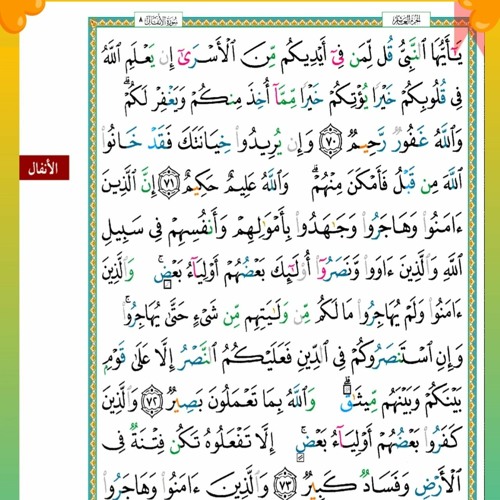 سُورَةُ الأَنفَال ٨
الجُزءُ العَاشِر
يَٰٓأَيُّهَا ٱلنَّبِيُّ قُل لِّمَن فِيٓ أَيۡدِيكُم مِّنَ ٱلۡأَسۡرَىٰٓ إِن يَعۡلَمِ ٱللَّهُ
فِي قُلُوبِكُمۡ خَيۡرٗا يُؤۡتِكُمۡ خَيۡرٗا مِّمَّآ أُخِذَ مِنكُمۡ وَيَغۡفِرۡ لَكُمۡۚ
وَٱللَّهُ غَفُورٞ رَّحِيمٞ ٧٠ وَإِن يُرِيدُواْ خِيَانَتَكَ فَقَدۡ خَانُواْ
ٱللَّهَ مِن قَبۡلُ فَأَمۡكَنَ مِنۡهُمۡۗ وَٱللَّهُ عَلِيمٌ حَكِيمٌ ٧١ إِنَّ ٱلَّذِينَ
ءَامَنُواْ وَهَاجَرُواْ وَجَٰهَدُواْ بِأَمۡوَٰلِهِمۡ وَأَنفُسِهِمۡ فِي سَبِيلِ
ٱللَّهِ وَٱلَّذِينَ ءَاوَواْ وَّنَصَرُوٓاْ أُوْلَٰٓئِكَ بَعۡضُهُمۡ أَوۡلِيَآءُ بَعۡضٖۚ وَٱلَّذِينَ
ءَامَنُواْ وَلَمۡ يُهَاجِرُواْ مَا لَكُم مِّن وَلَٰيَتِهِم مِّن شَيۡءٍ حَتَّىٰ يُهَاجِرُواْۚ
وَإِنِ ٱسۡتَنصَرُوكُمۡ فِي ٱلدِّينِ فَعَلَيۡكُمُ ٱلنَّصۡرُ إِلَّا عَلَىٰ قَوۡمِۭ
بَيۡنَكُمۡ وَبَيۡنَهُم مِّيثَٰقٞۗ وَٱللَّهُ بِمَا تَعۡمَلُونَ بَصِيرٞ ٧٢ وَٱلَّذِينَ
كَفَرُواْ بَعۡضُهُمۡ أَوۡلِيَآءُ بَعۡضٍۚ إِلَّا تَفۡعَلُوهُ تَكُن فِتۡنَةٞ فِي
ٱلۡأَرۡضِ وَفَسَادٞ كَبِيرٞ ٧٣ وَٱلَّذِينَ ءَامَنُواْ وَهَاجَرُواْ
الأنفال